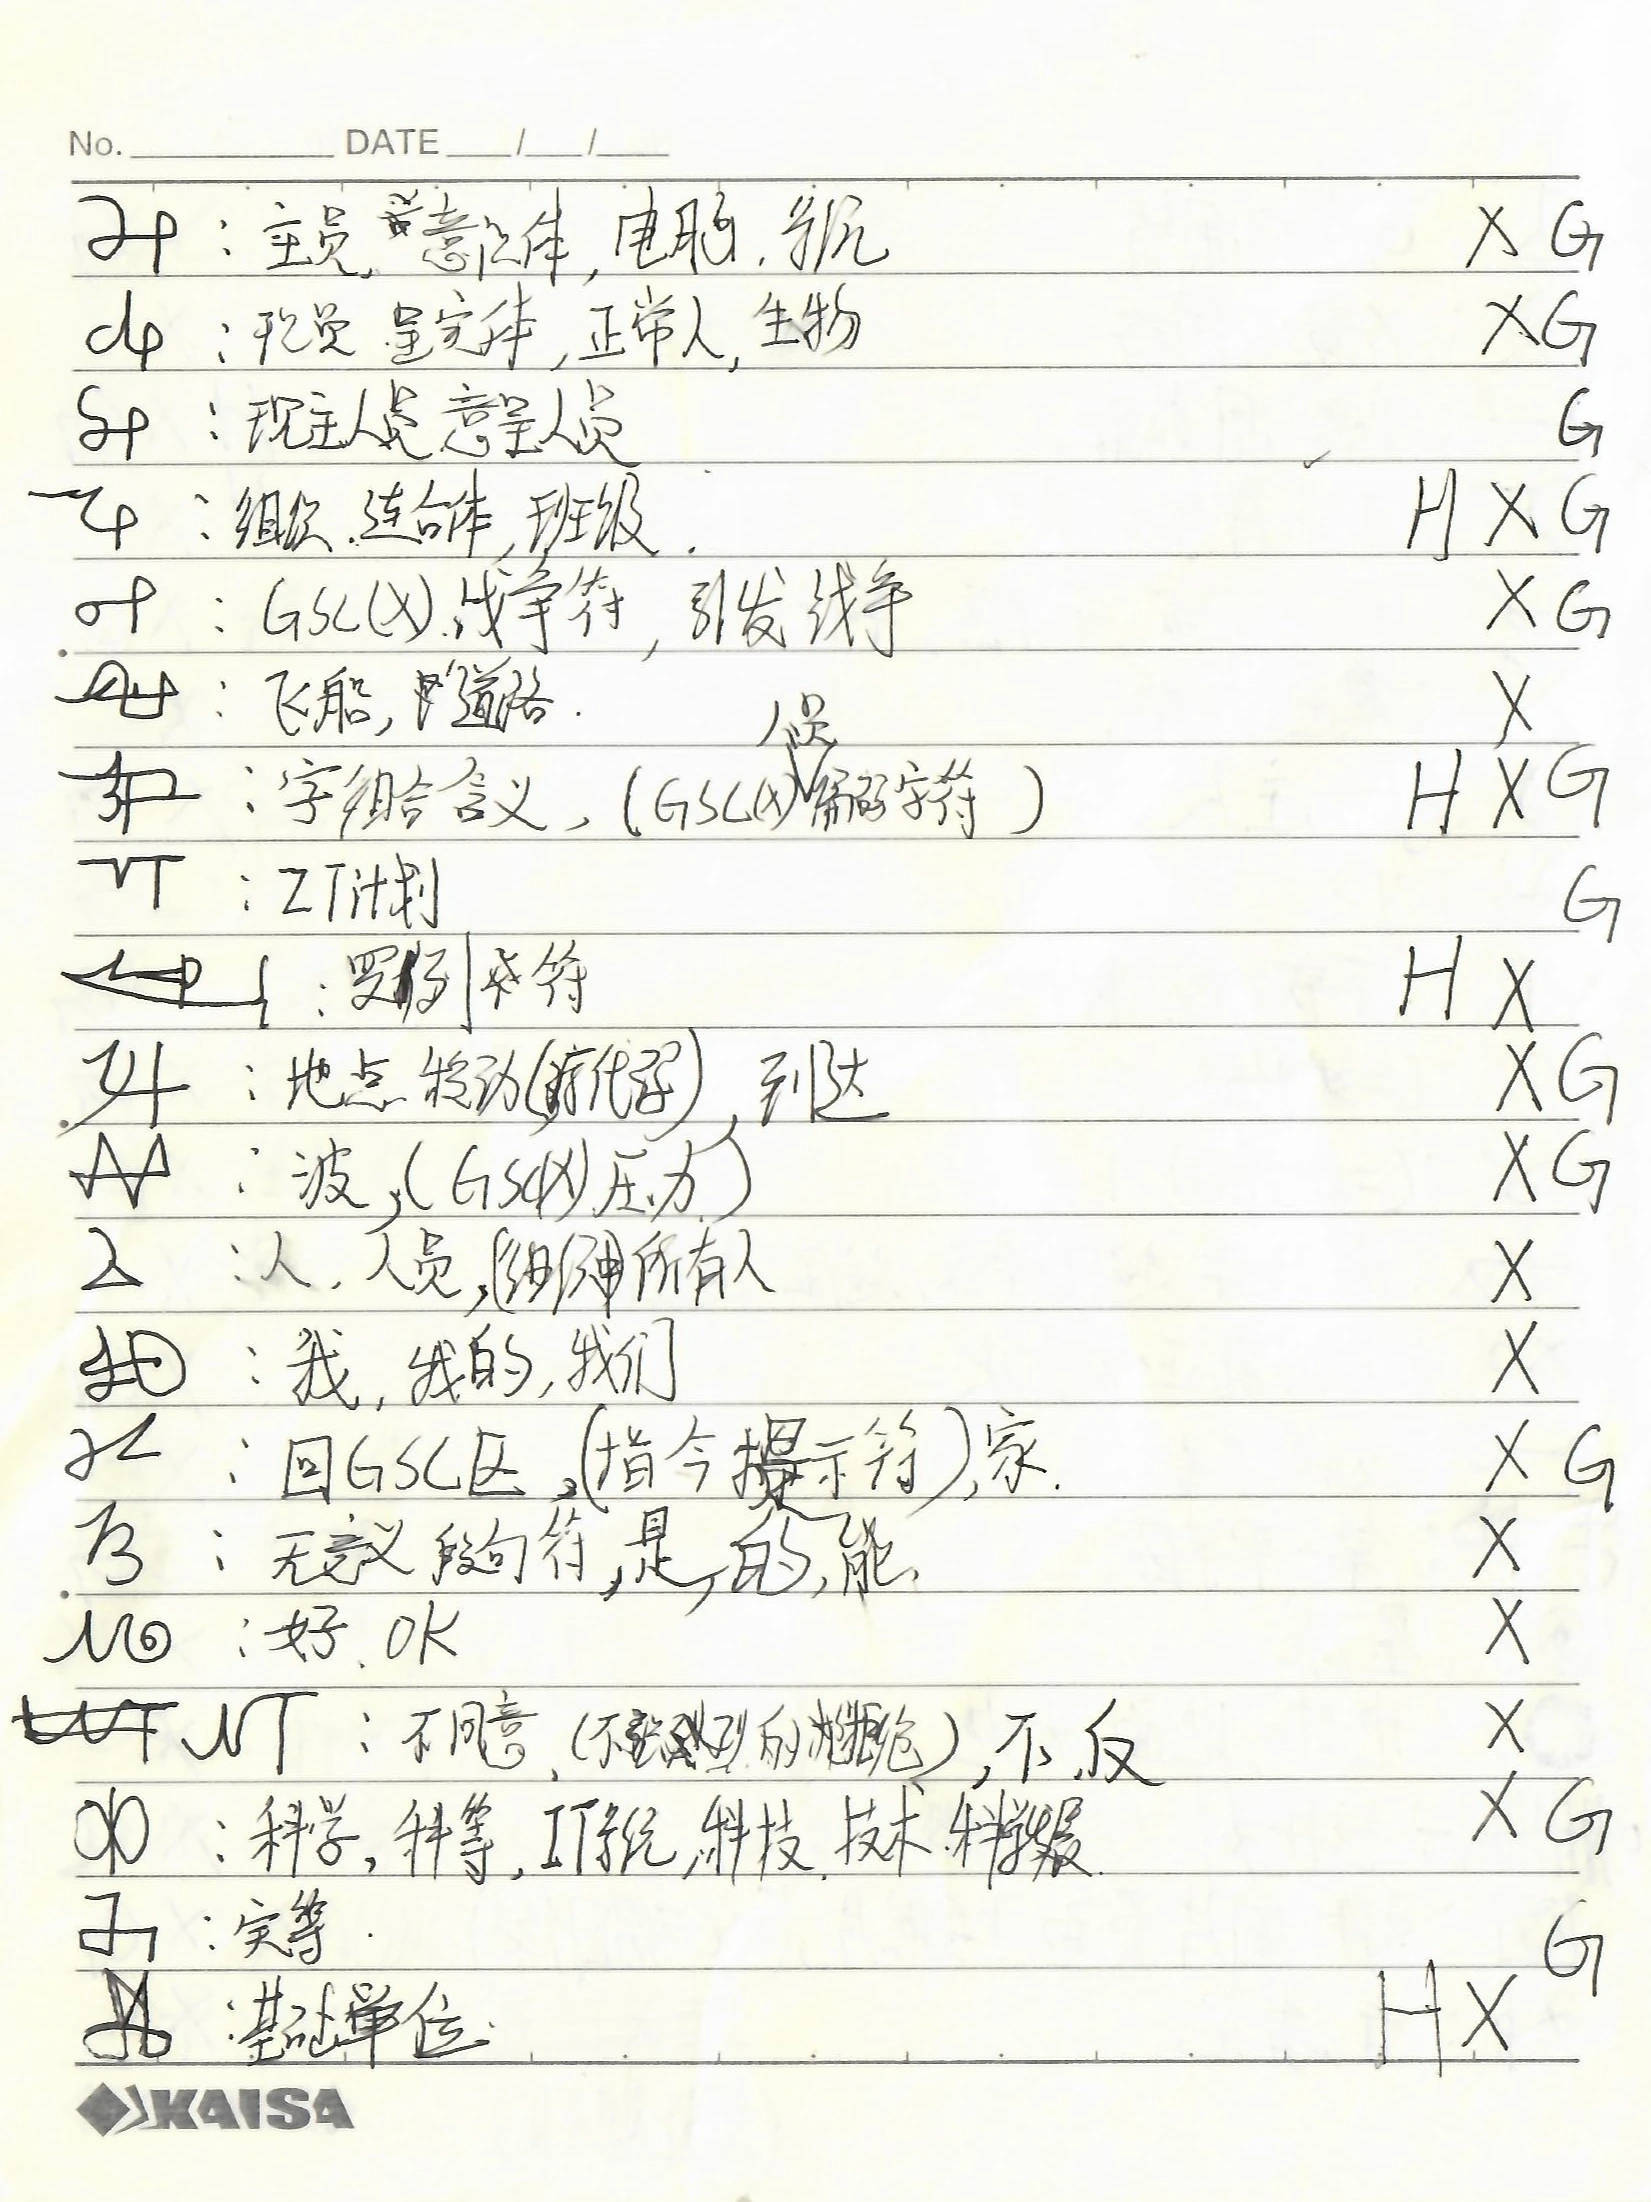 No. DATE / /
: 主员, 意识体, 电脑. X G
: 现员 呈实体, 正常人, 生物 X G
: 现主人员 意呈人员 G
: 组织. 连合体, 班级. H X G
: GSC(X). 战争符, 引发战争 X G
: 飞船, 道路. X
人员
: 字组合含义, (GSC(X) 编码字符) H X G
: ZT计划 G
: 罗列 符 H X
: 地点 移动( ), 到达 X G
: 波, (GSC(X) 压力) X G
: 人. 人员, 所有人 X
: 我, 我的, 我们 X
: 回GSC区, (指令提示符), 家. X G
: 无意义 段句符, 是, 的, 能, X
: 好. OK X
: 不同意, ( 的拒绝), 不. 反 X
: 科学, 科等, IT系统, 科技. 技术. X G
: 实等. G
: 基础单位. H X
KAISA